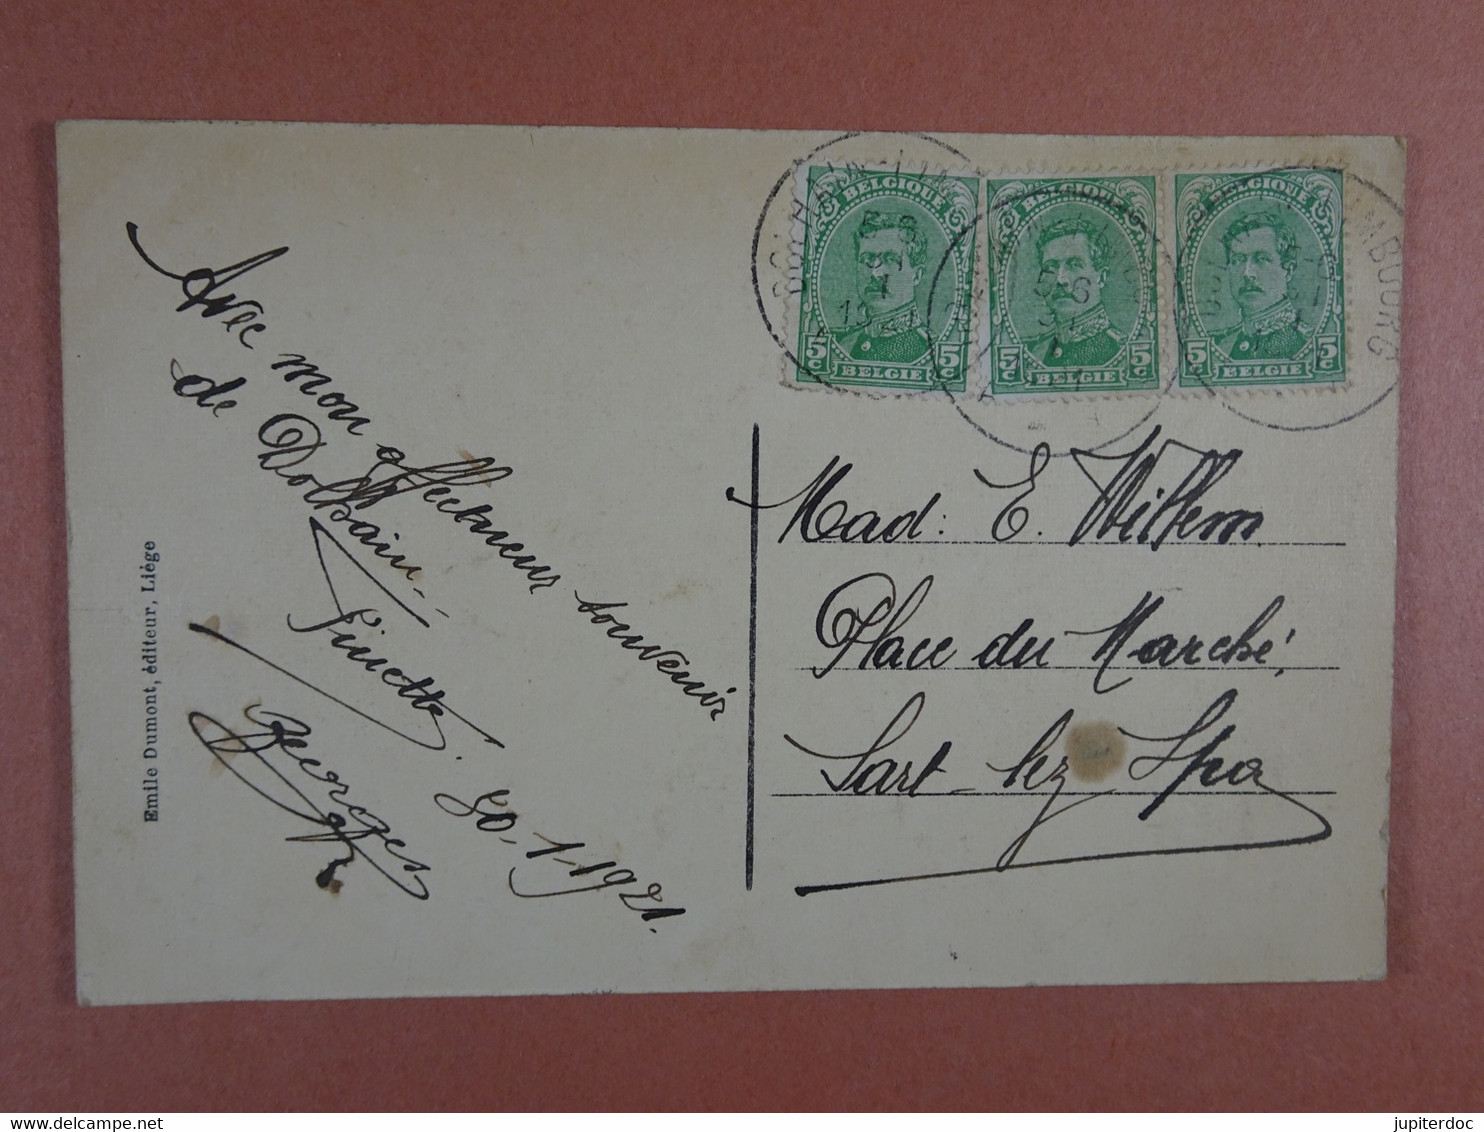 Avec mon affectueux souvenir
de Dolhain.
Ginette.
Georges
30-1-1921.
Emile Dumont, éditeur, Liège
BELGIQUE
5c 5c
BELGIE
BELGIQUE
5c 5c
BELGIE
BELGIQUE
5c 5c
BELGIE
DOLHAIN-LIMBOURG
1921
Mad. E. Willem
Place du Marché,
Sart-lez Spa
jupiterdoc